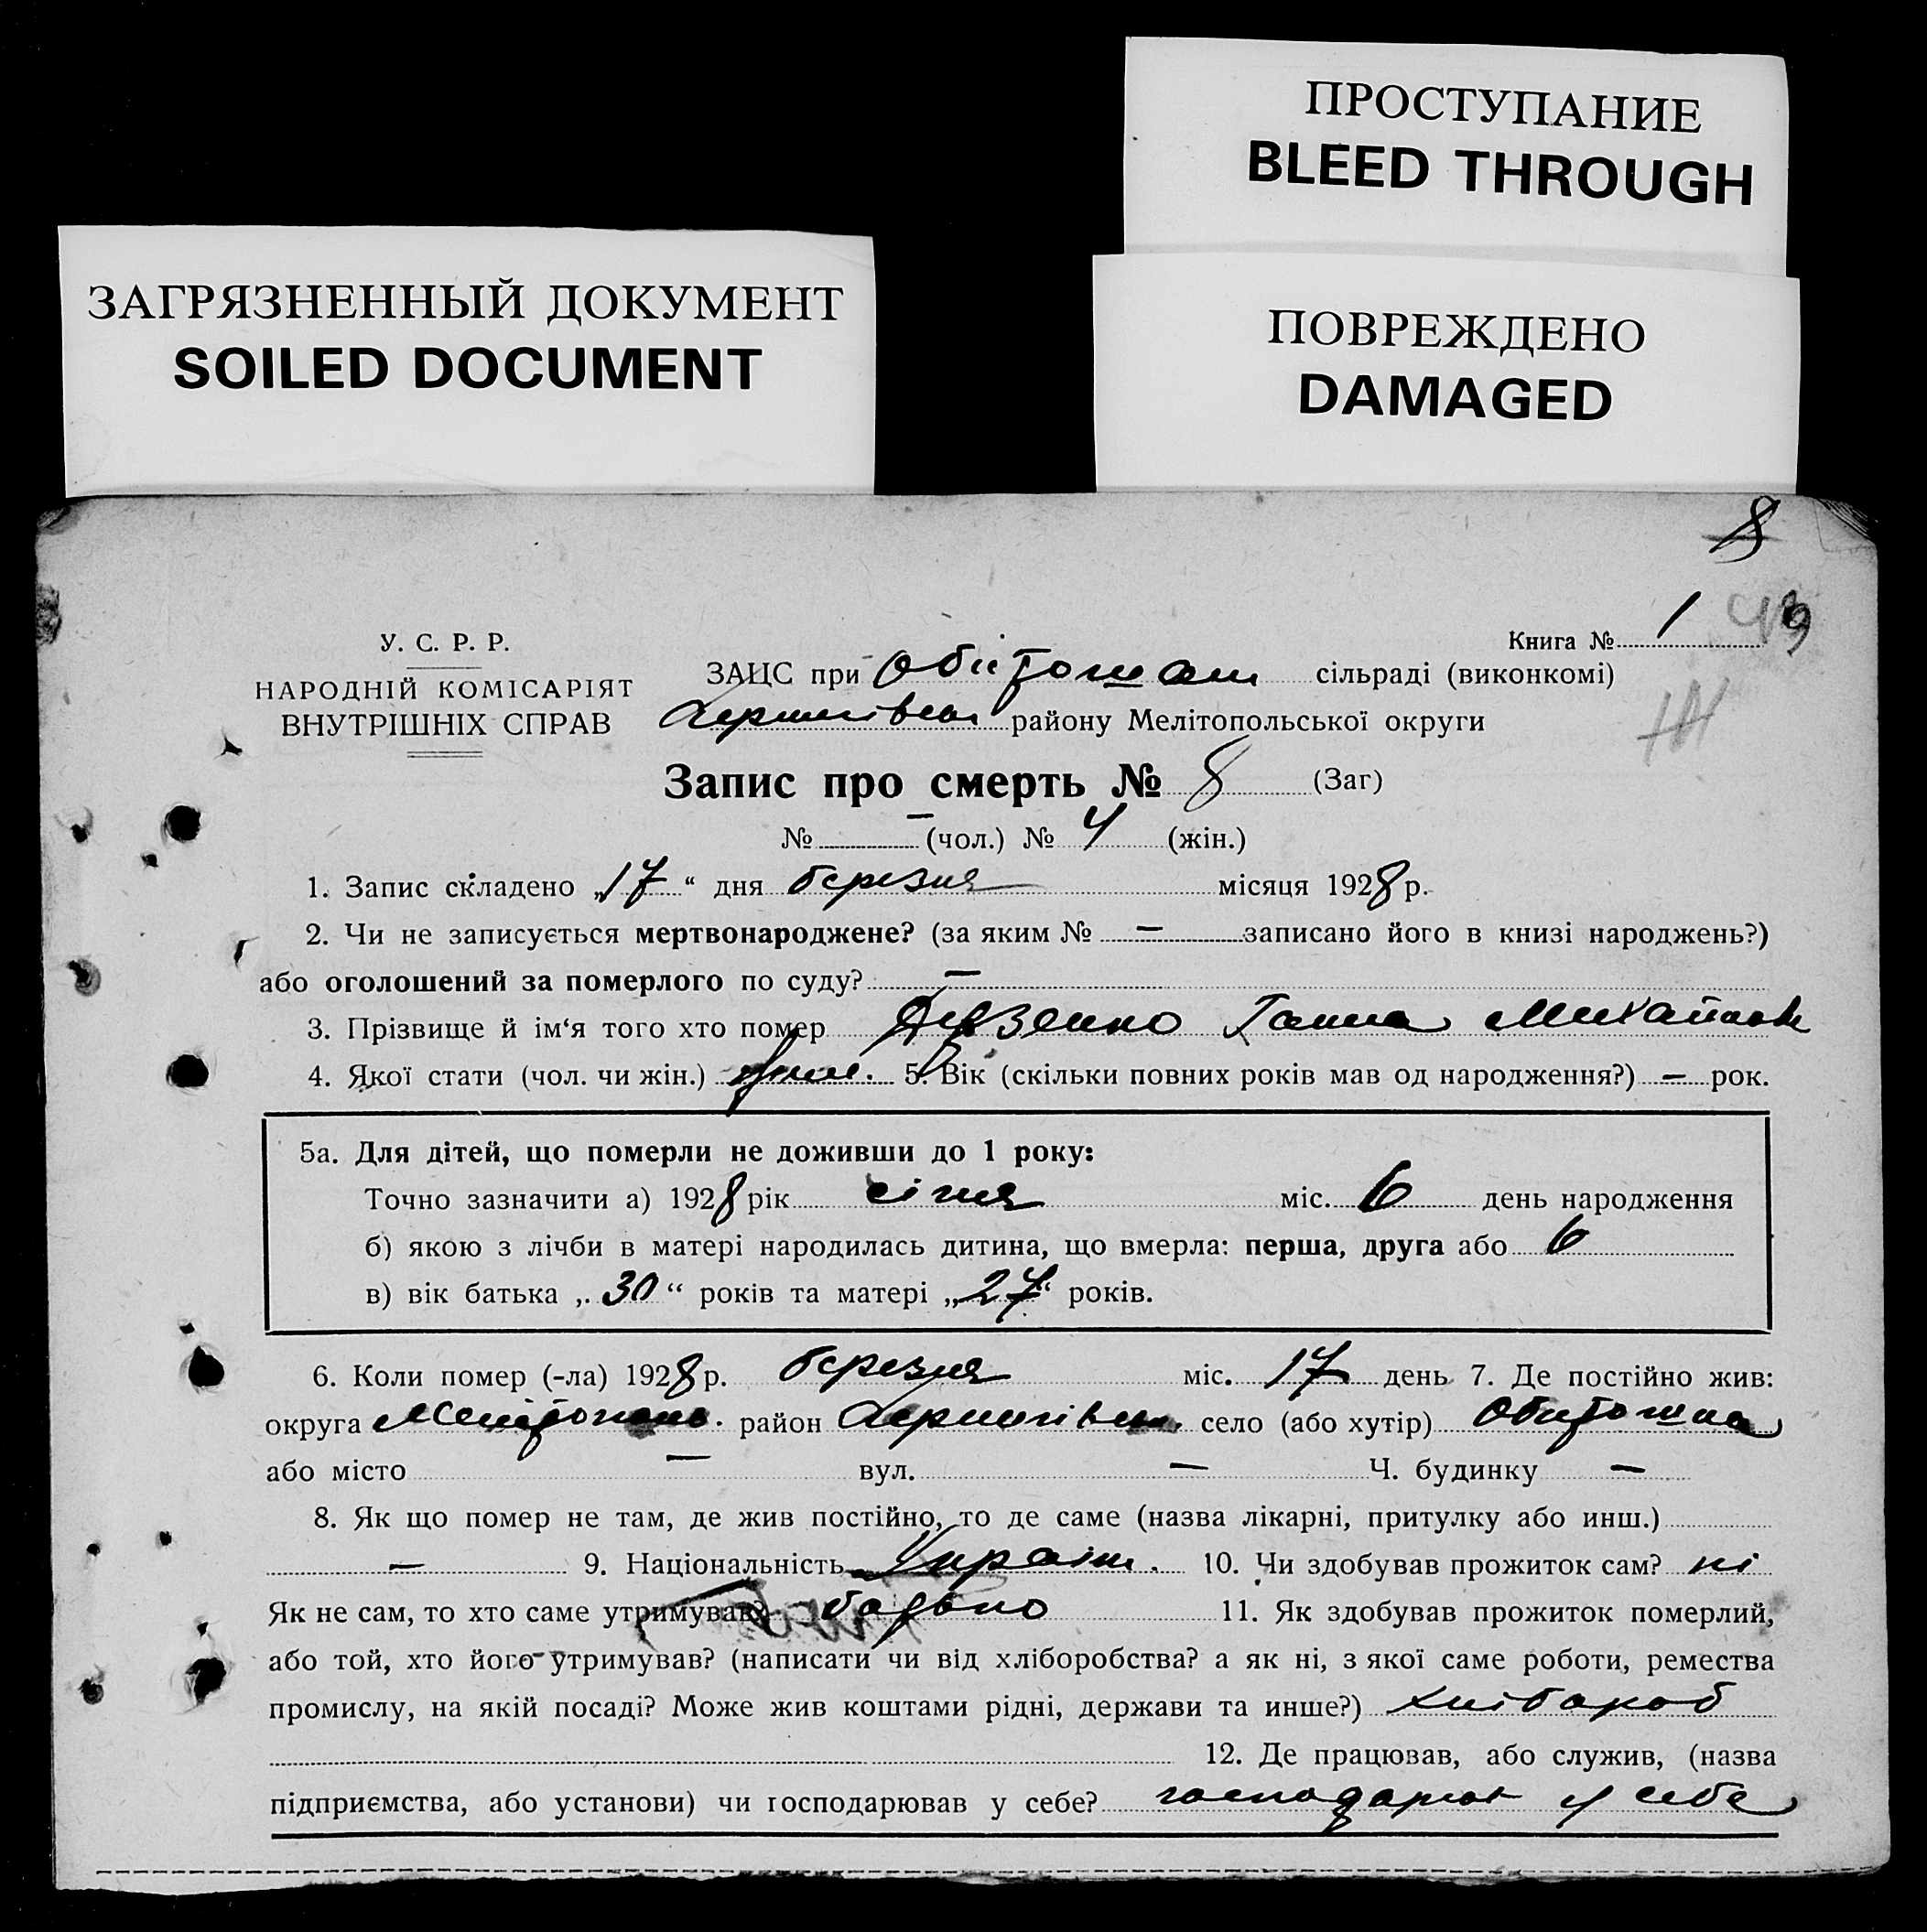 ПРОСТУПАНИЕ
BLEED THROUGH
ЗАГРЯЗНЕННЫЙ ДОКУМЕНТ
SOILED DOCUMENT
ПОВРЕЖДЕНО
DAMAGED
8
Книга № 1
У. С. Р. Р.
НАРОДНІЙ КОМІСАРІЯТ
ВНУТРІШНІХ СПРАВ
ЗАЦС при сільраді (виконкомі)
району Мелітопольської округи
Запис про смерть № 8 (Заг)
№ — (чол.) № 4 (жін.)
1. Запис складено „17“ дня березня місяця 1928 р.
2. Чи не записується мертвонароджене? (за яким № — записано його в книзі народжень?)
або оголошений за померлого по суду? —
3. Прізвище й ім‘я того хто помер Ганна
4. Якої стати (чол. чи жін.) жін. 5. Вік (скільки повних років мав од народження?) — рок.
5а. Для дітей, що померли не доживши до 1 року:
Точно зазначити а) 1928 рік січня міс. 6 день народження
б) якою з лічби в матері народилась дитина, що вмерла: перша, друга або 6
в) вік батька „30“ років та матері „27“ років.
6. Коли помер (-ла) 1928 р. березня міс. 17 день 7. Де постійно жив:
округа Мелітопольс. район село (або хутір) Обиточна
або місто — вул. — Ч. будинку —
8. Як що помер не там, де жив постійно, то де саме (назва лікарні, притулку або инш.)
— 9. Національність Україн. 10. Чи здобував прожиток сам? ні
Як не сам, то хто саме утримував? батько 11. Як здобував прожиток померлий,
або той, хто його утримував? (написати чи від хліборобства? а як ні, з якої саме роботи, ремества
промислу, на якій посаді? Може жив коштами рідні, держави та инше?) хлібароб
12. Де працював, або служив, (назва
підприємства, або установи) чи господарював у себе? господарюв у себе